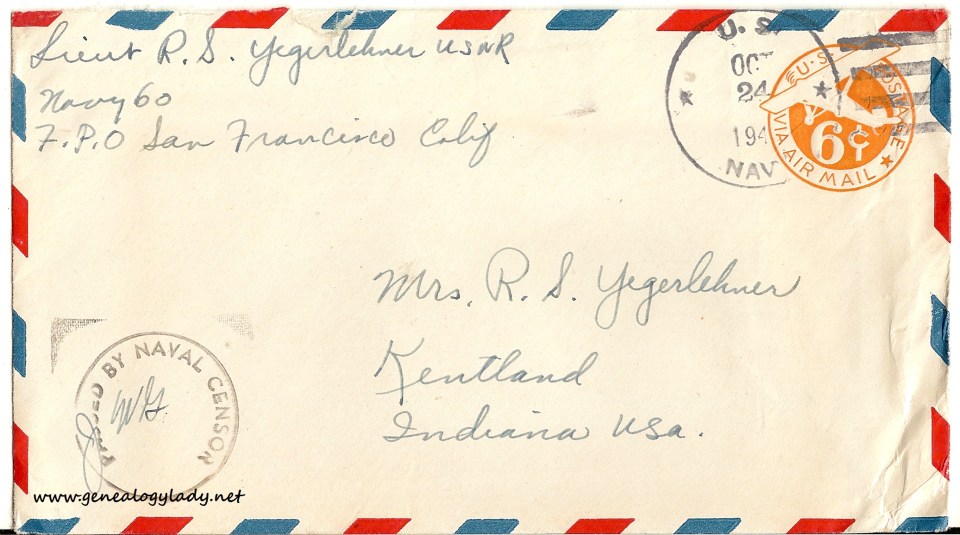 Lieut R. S. Yegerlehner USNR
Navy 60
F.P.O San Francisco Calif
U. S.
OCT
24
194
NAV
U.S. POSTAGE
6¢
VIA AIR MAIL
Mrs. R. S. Yegerlehner
Kentland
Indiana USA.
PASSED BY NAVAL CENSOR
www.genealogylady.net